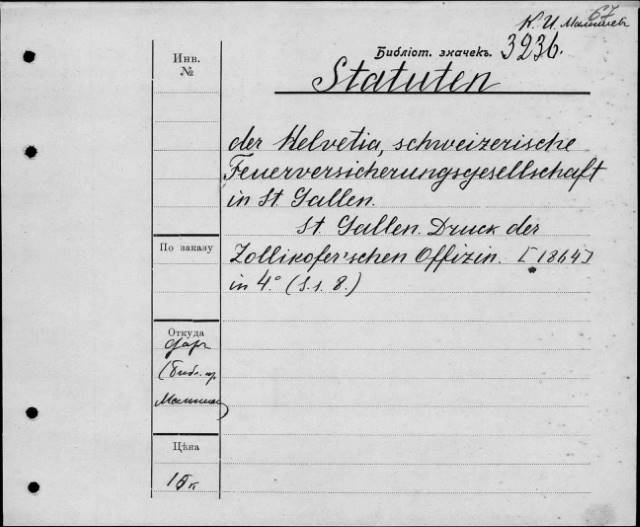 67
К. И. Малышев
Библіот. значекъ.
3236.
Инв.
№
Statuten
der Helvetia, schweizerische
Feuerversicherungsgesellschaft
in St. Gallen.
St. Gallen. Druck der
Zollikofer'schen Offizin. [1864]
in 4.° (S. s. 8.)
По заказу
Откуда
даръ
(библ. пр.
Малыш)
Цѣна
15 к